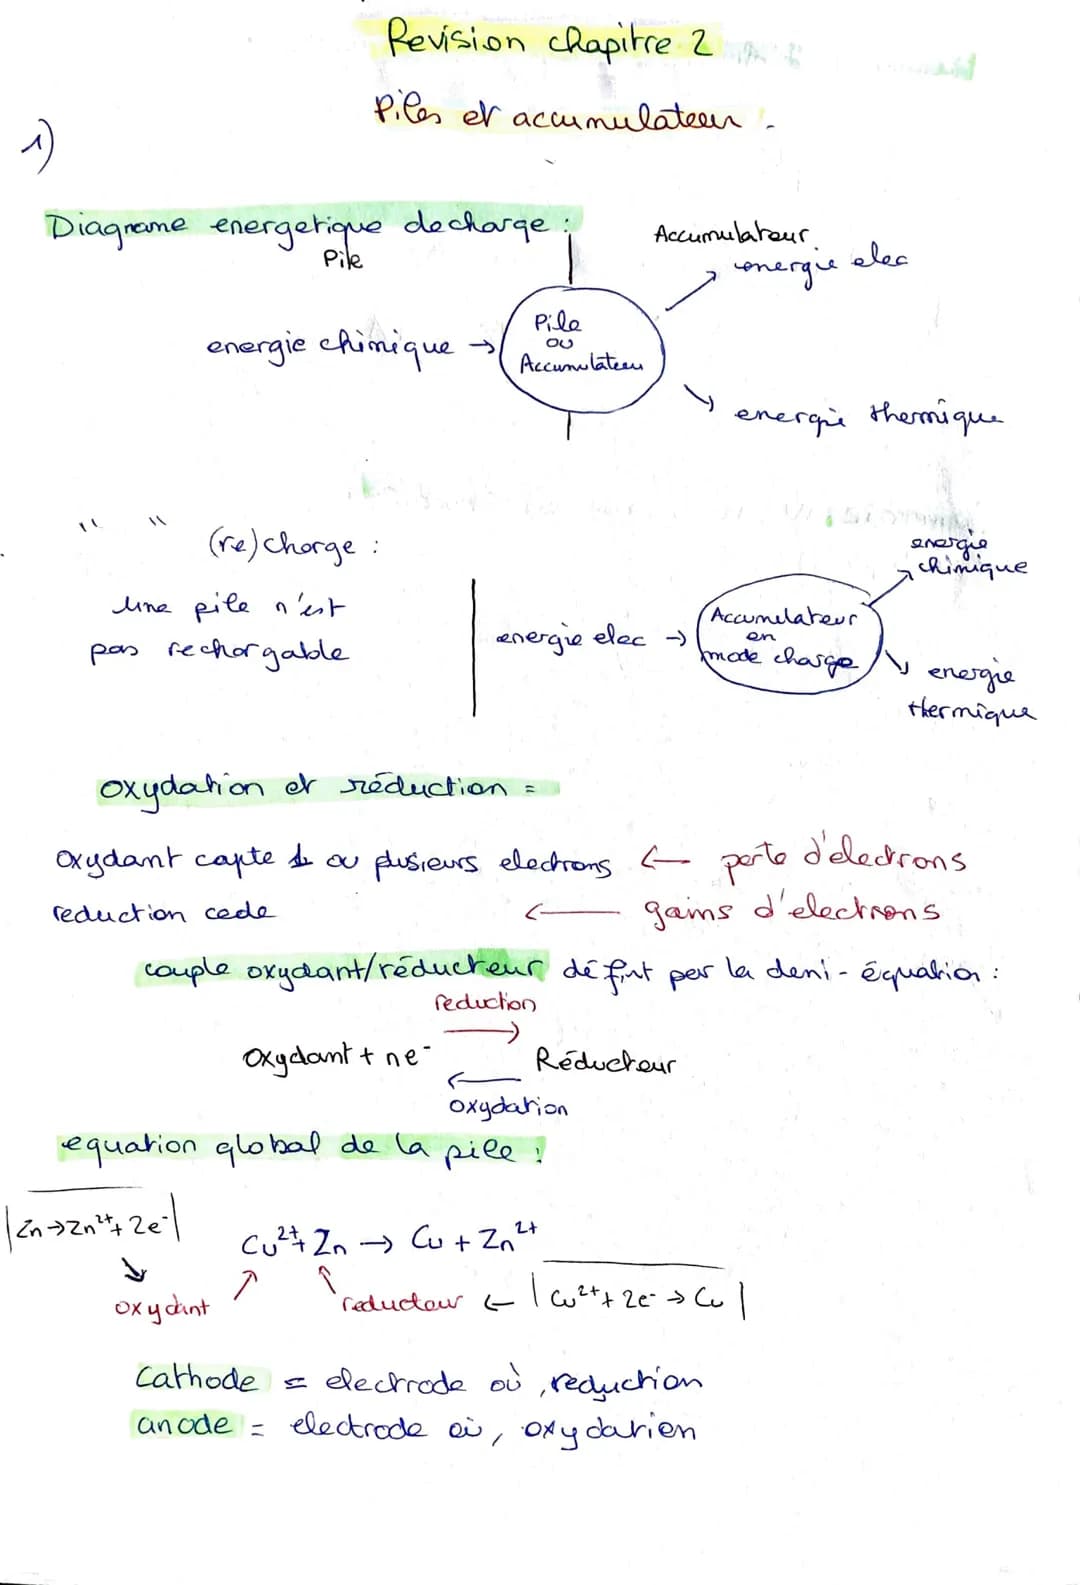 Revision chapitre 2
Piles et accumulateur :
1)
Diagrame energetique decharge :
Pile
Accumulateur
energie elec
energie chimique →
Pile
ou
Accumulateur
energie thermique
" " (re)charge :
energie
chimique
Une pile n'est
pas rechargable
energie elec →
Accumulateur
en
mode charge
energie
thermique
oxydation et réduction =
oxydant capte 1 ou plusieurs electrons ← perte d'électrons
reduction cede ← gains d'electrons
couple oxydant/réducteur définit par la demi-équation :
reduction
→
Oxydant + ne⁻ Réducteur
←
oxydation
equation global de la pile :
|Zn→Zn²⁺+ 2e⁻|
Cu²⁺+ Zn → Cu + Zn²⁺
oxydant
reducteur ← |Cu²⁺+ 2e⁻ → Cu|
Cathode = electrode où, reduction
anode = electrode où, oxydation